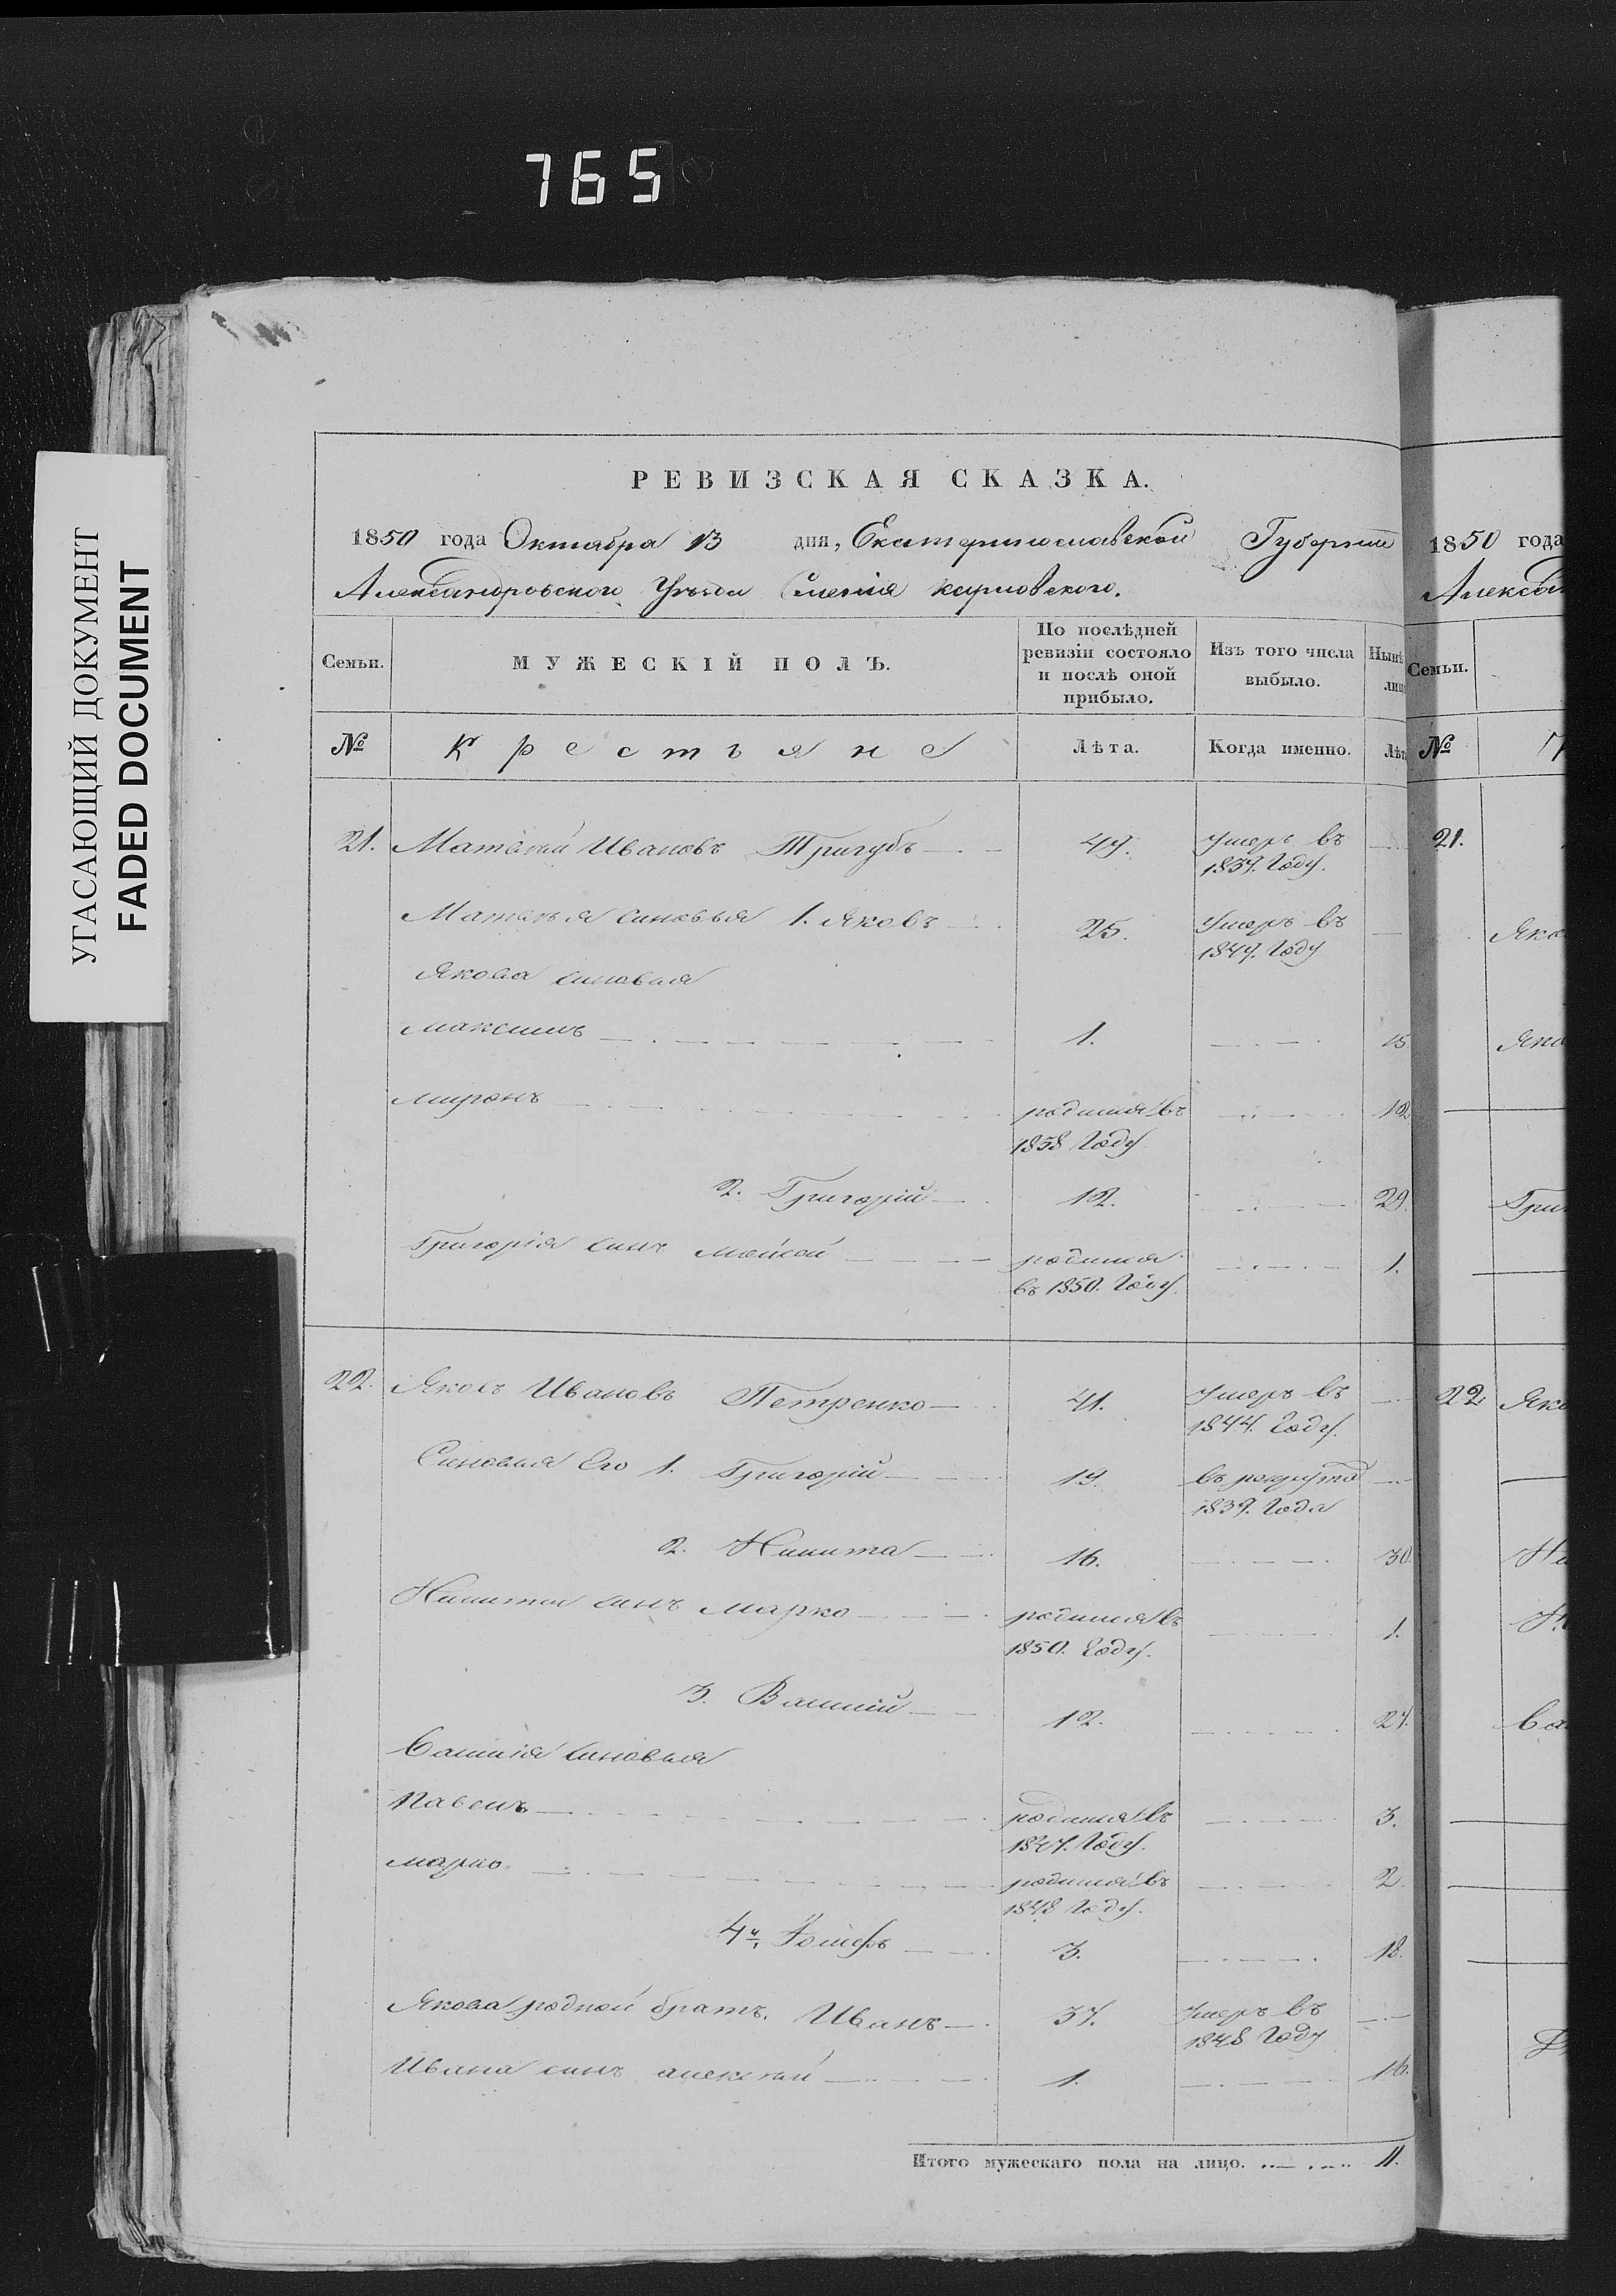 765
УГАСАЮЩИЙ ДОКУМЕНТ
FADED DOCUMENT
РЕВИЗСКАЯ СКАЗКА.
1850 года Октября 13 дня, Екатеринославской Губерніи
Александровского Уѣзда Имѣнія
Семьи. МУЖЕСКІЙ ПОЛЪ. По послѣдней ревизіи состояло и послѣ оной прибыло. Изъ того числа выбыло. Нынѣ лиц
№ Крестьяне Лѣта. Когда именно. Лѣт
21. Матвій Ивановъ Тригубъ 49. Умеръ въ
1839. Году.
Матвѣя синовья 1. Яковъ 25. Умеръ въ
1849. Году
Якова синовья
Максимъ 1. 15.
Миронъ родился въ 12
1838 Году.
2. Григорій 12. 29.
Григорія синъ Мойсей родился 1.
въ 1850. Году.
22. Яковъ Ивановъ Петренко 41. Умеръ въ
1844. Году.
Синовья Его 1. Григорій 19. въ рекрута
1839. Года
2. Никита 16. 30.
Никиты синъ Марко родился въ 1.
1850. Году.
3. Василій 12. 27.
Василія синовья
Павелъ родился въ 3.
1847. Году.
Марко родился въ 2.
1848 Году.
4й, Іосифъ 3. 18.
Якова родной братъ. Иванъ 37. Умеръ въ
1848 Году
Ивана синъ Алексѣй 1. 16.
Итого мужескаго пола на лицо. 11.
1850 года
Семьи.
№
21.
22